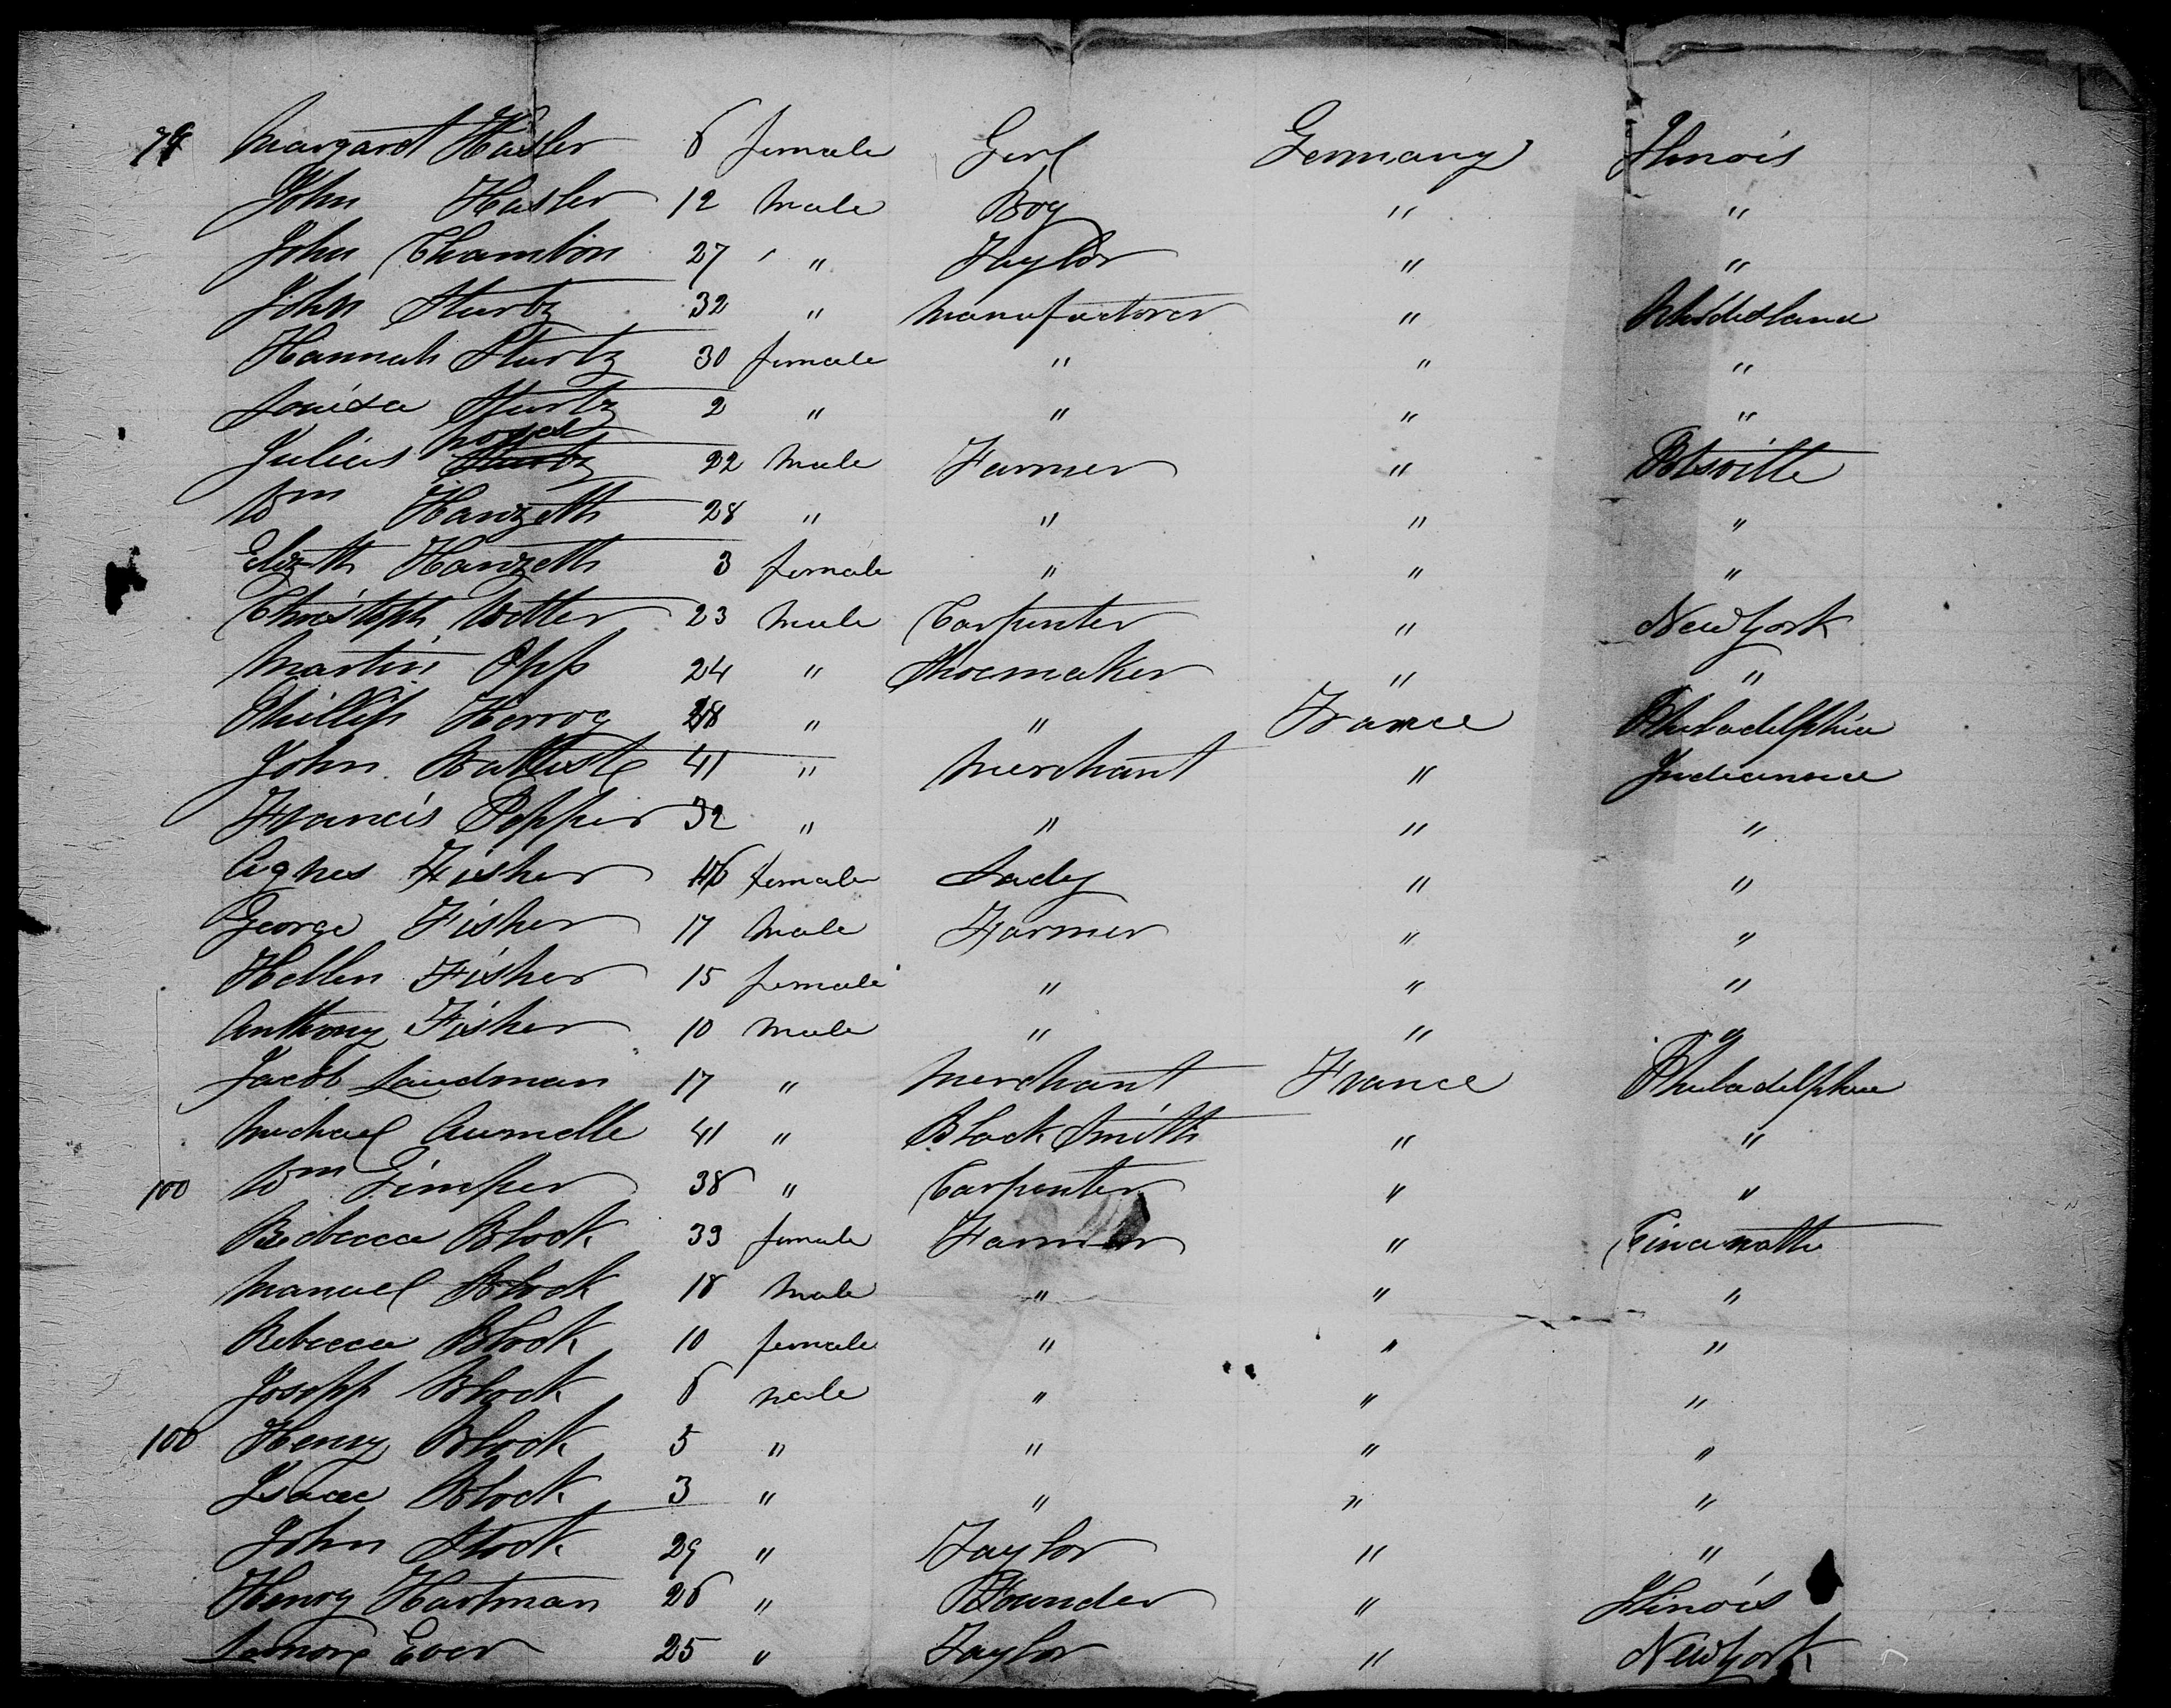 79 Margaret Hasler 6 female Girl Germany Ilinois
John Hasler 12 Male Boy " "
John Chambon 27 " Taylor " "
John Sturtz 32 " Manufactorer " Rhodesland
Hannah Sturtz 30 female " " "
Louisa Sturtz 2 " " " "
Julius 22 Male Farmer " Potsville
Wm Hanzeth 28 " " " "
Elizth Hanzeth 3 female " " "
Christoph Wotter 23 Male Carpenter " New York
Martin Opp 24 " Shoemaker " "
Phillip Herrog 28 " " France Philadelphia
John Battiste 41 " Merchant " Indianna
Francis Popper 32 " " " "
Agnes Fisher 46 female Lady " "
George Fisher 17 Male Farmer " "
Hellen Fisher 15 female " " "
Anthony Fisher 10 Male " " "
Jacob Landman 17 " Merchant France Philadelphia
Michael Aumelle 41 " Black Smith " "
100 Wm Gimper 38 " Carpenter " "
Rebecca Block 33 female Farmer " Cincinatti
Manuel Block 18 Male " " "
Rebecca Block 10 female " " "
Joseph Block 6 male " " "
100 Henry Block 5 " " " "
Isaac Block 3 " " " "
John Stock 29 " Taylor " "
Henry Hartman 26 " Founder " Ilinois
Lemore Ever 25 " Taylor " New York